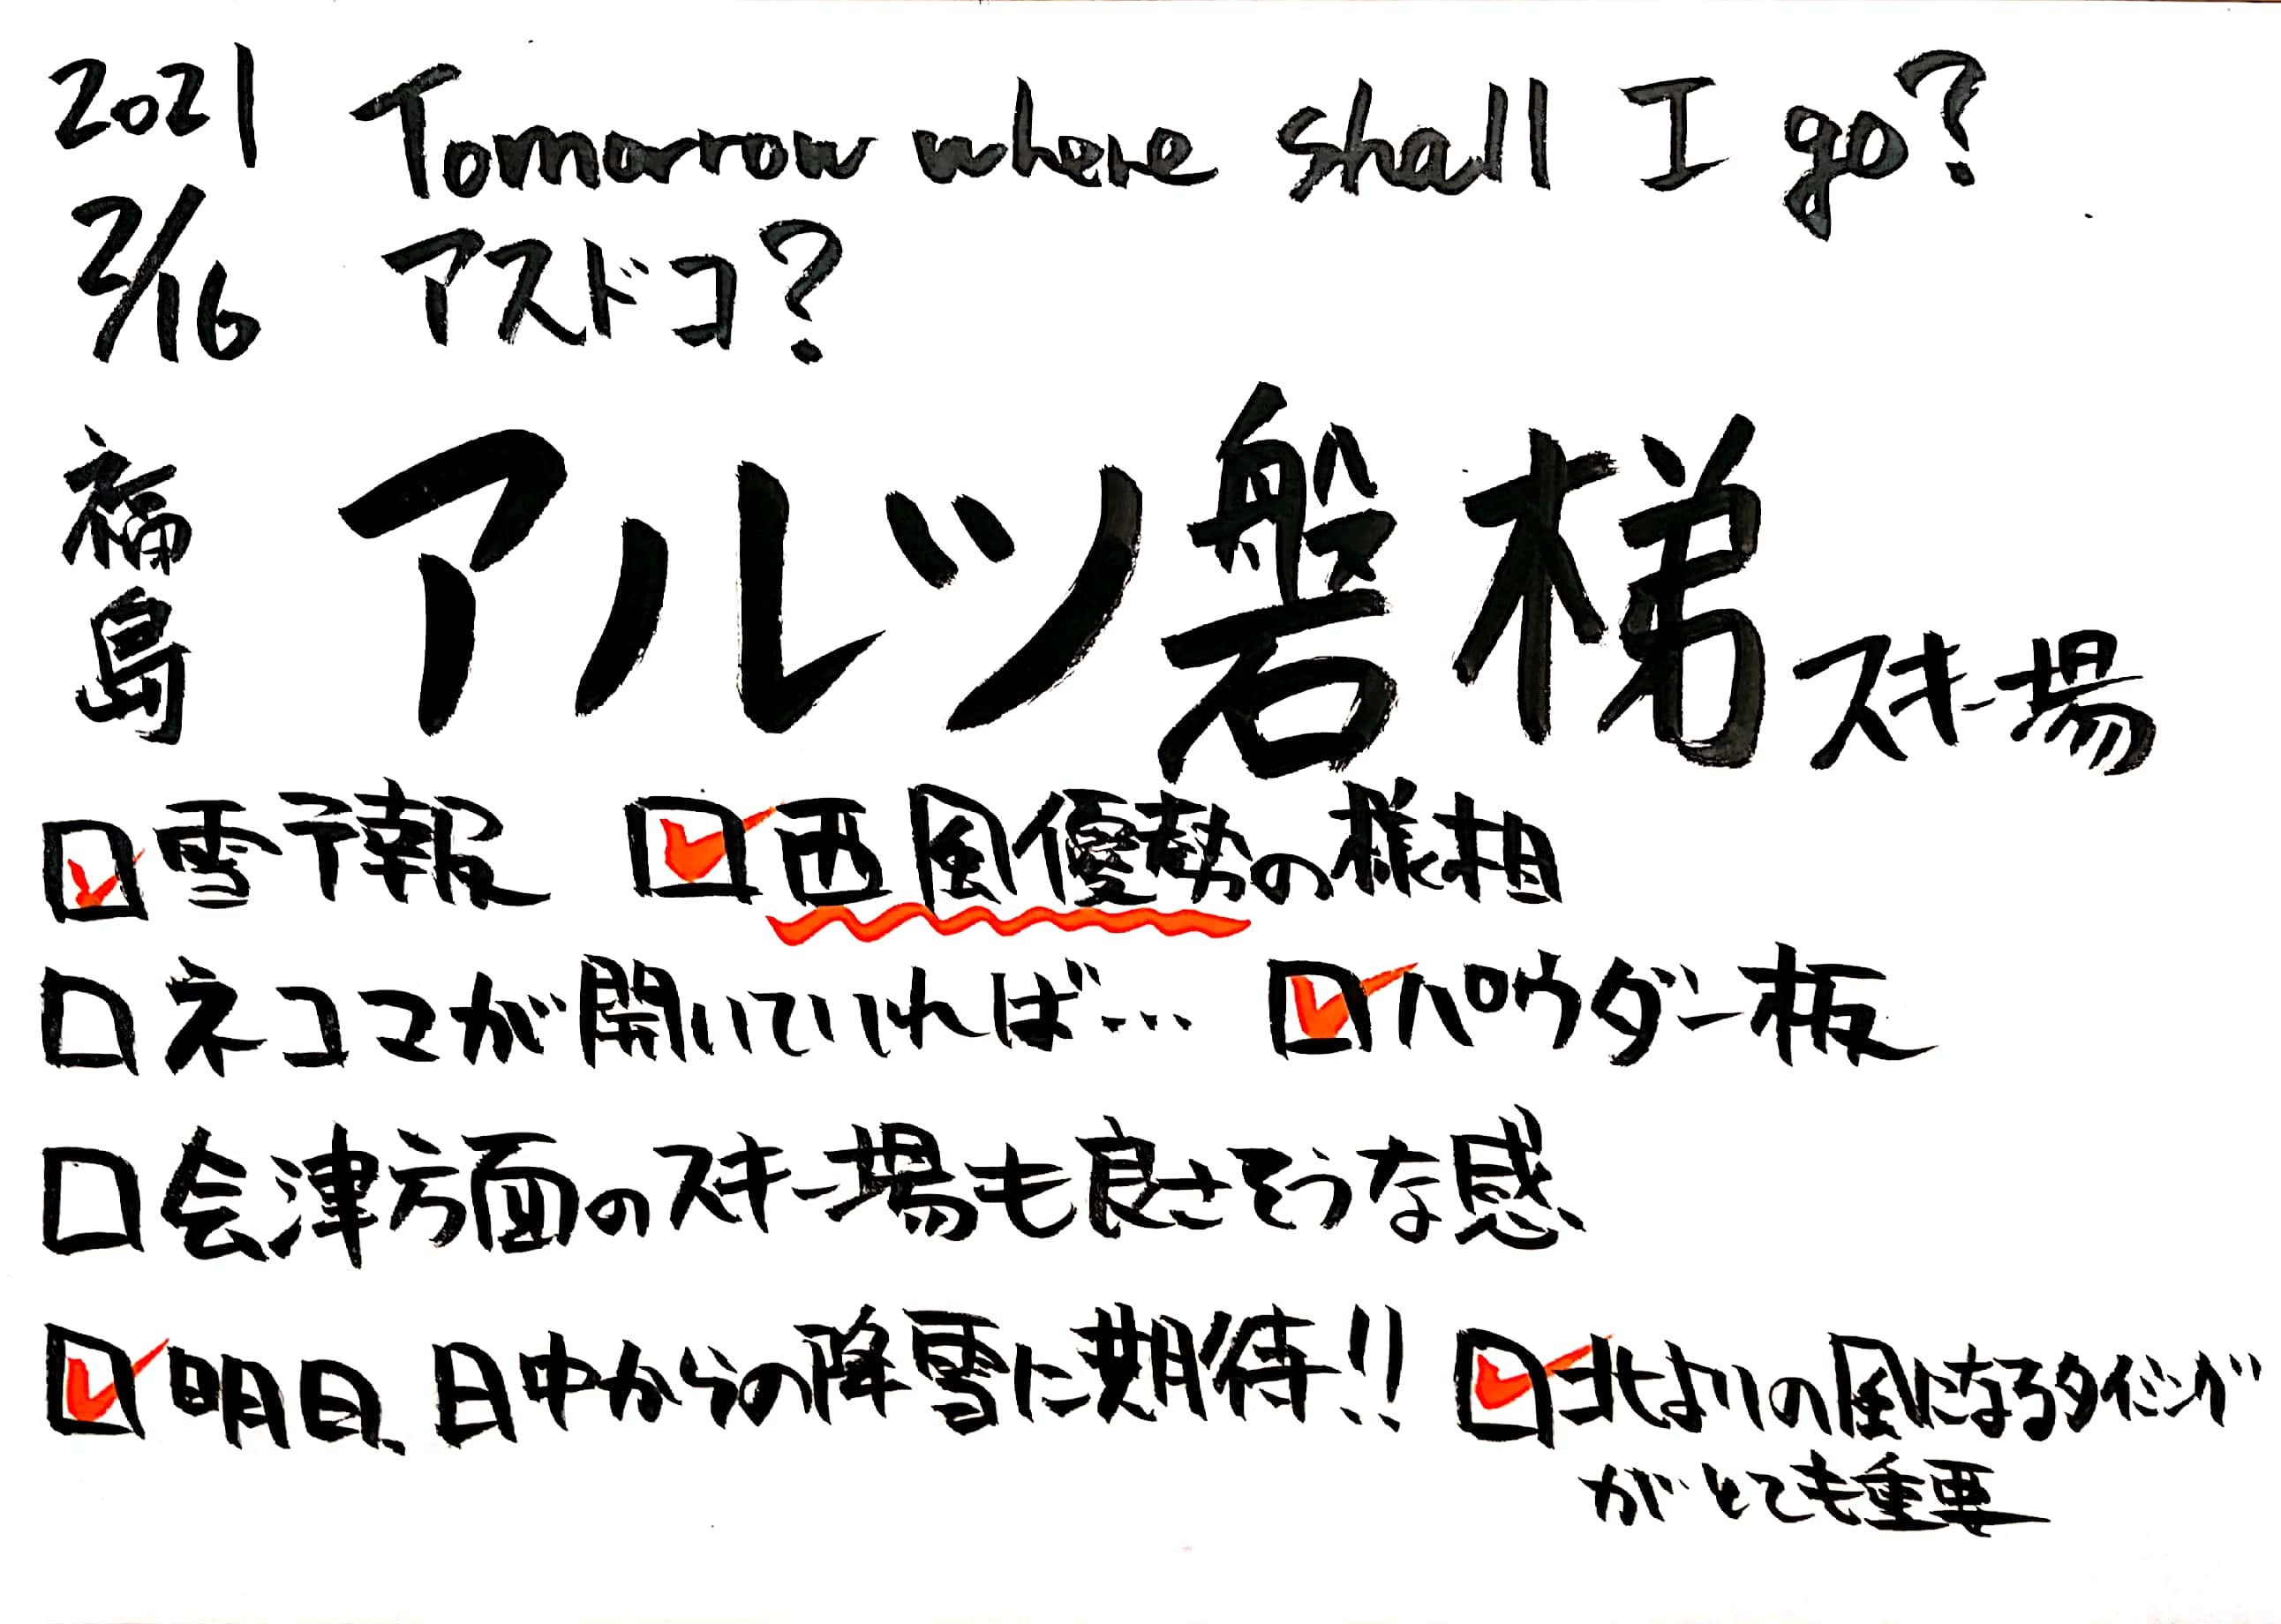 2021 Tomorrow where shall I go?
2/16 アスドコ?
福島 アルツ磐梯スキー場
□雪予報 □西風優勢の様相
□ネコマが開いていれば… □パウダー板
□会津方面のスキー場も良さそうな感
□明日、日中からの降雪に期待!! □北よりの風になるタイミング
がとても重要